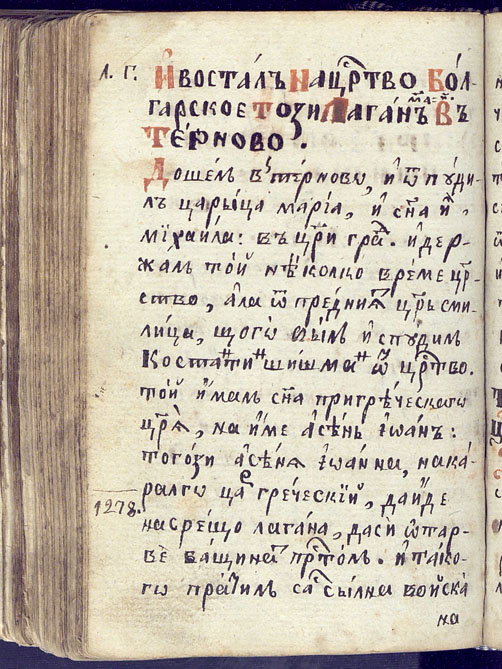 л. г. И восталъ на црⷭ҇тво бол-
гарское този Лаганъ въ
Тѣрново.
Дошелъ в тѣрново, и ѿпуди-
лъ царыца марїа, и сн҃а и҆̀
мїхаила: въ цр҃и граⷣ. и дер-
жалъ той нѣколко време црⷭ҇-
ство, ала ѿ предниѧⷮ цр҃ь сми-
лица, щого былъ испудилъ
Костаⷩ҇тиⷩ҇ шишмаⷩ҇ ѿ црⷭ҇тво.
той ималъ сн҃а при греческаго
цр҃ѧ, на име асѣнь їѡанъ:
тогози асѣнѧ їѡанна, нака-
ралго цаⷬ҇ греческїй, да иде
1278. насрещо лагана, да си ѿтар-
ве бащинаⷮ прⷭ҇тол. и тако-
го пратилъ са сылна войска
на